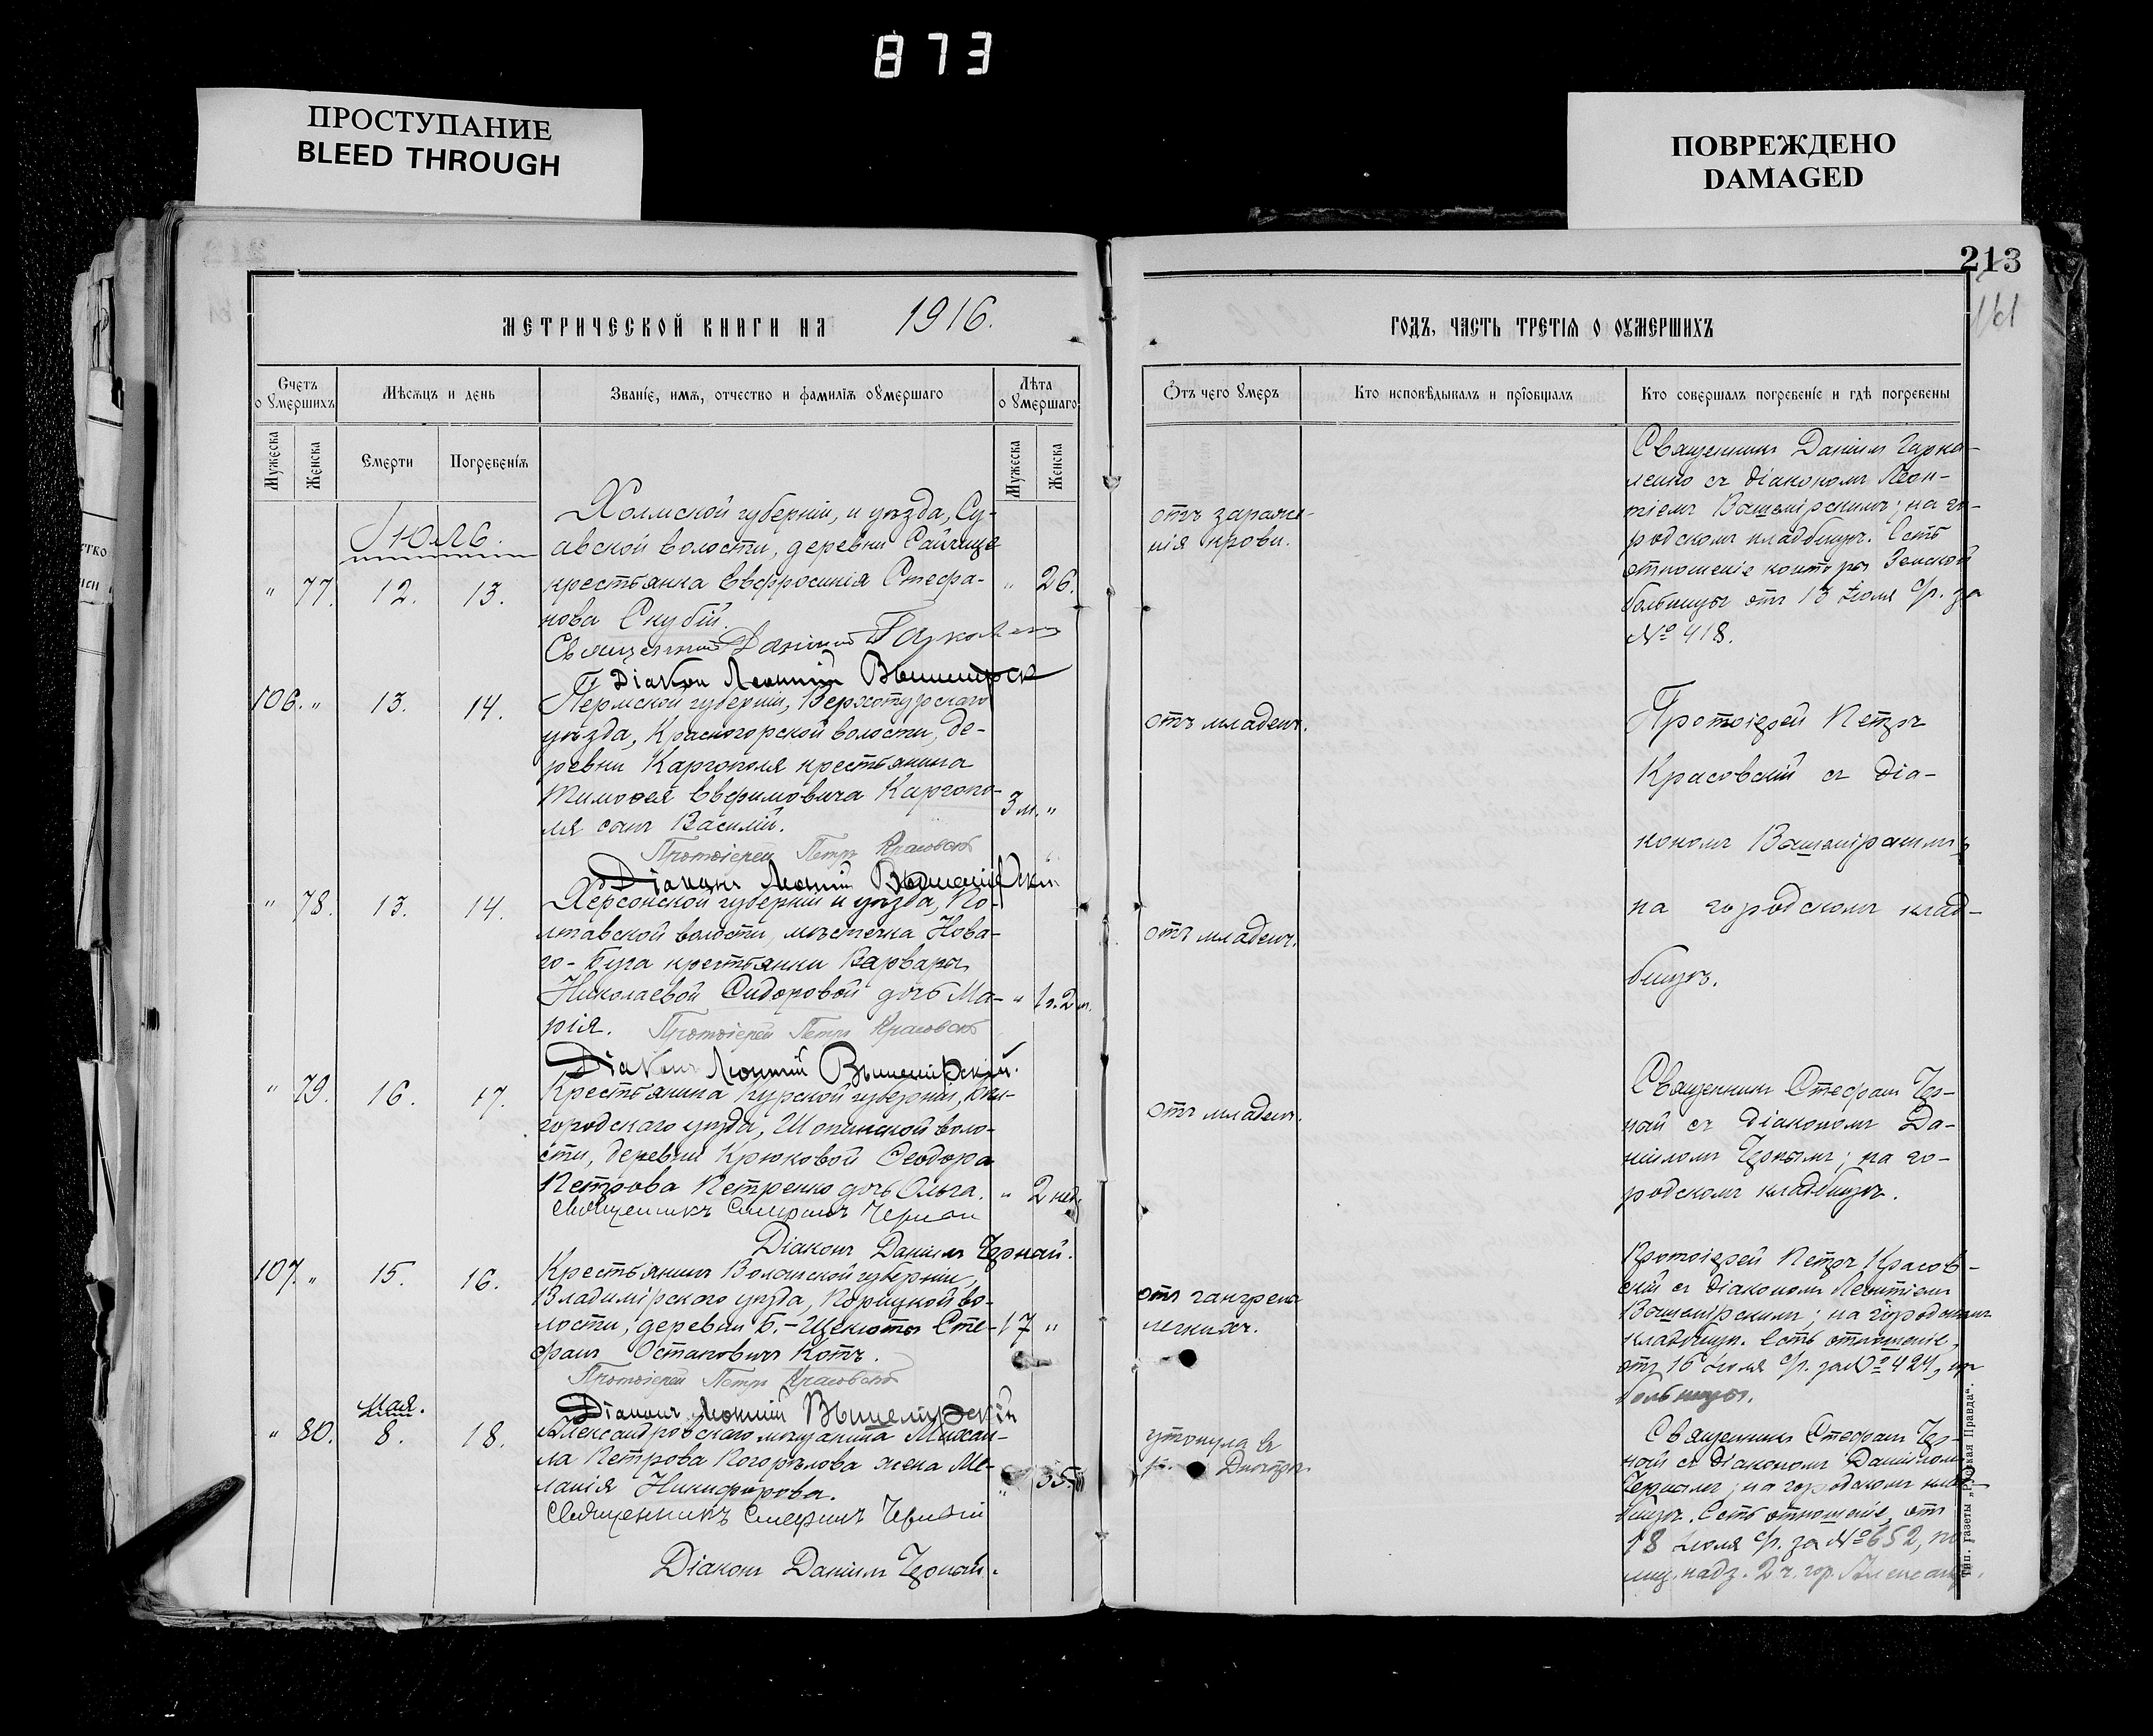 873
ПРОСТУПАНИЕ
BLEED THROUGH
ПОВРЕЖДЕНО
DAMAGED
213
161
МЕТРИЧЕСКОЙ КНИГИ НА 1916.
ГОДЪ, ЧАСТЬ ТРЕТІѦ О ОУМЕРШИХЪ
Счетъ о умершихъ
Мѣсяцъ и день
Званіе, имѧ, отчество и фамиліѧ оумершаго
Лѣта оумершаго
Мужеска
Женска
Смерти
Погребеніѧ
Мужеска
Женска
Отъ чего умеръ
Кто исповѣдывалъ и пріобщалъ
Кто совершалъ погребеніе и гдѣ погребены
Іюль.
" 77. 12. 13.
Холмской губерніи, и уѣзда, Су-
авской волости, деревни
крестьянка Евфросинія Стефа-
нова Скубій.
" 26.
Священникъ Даніилъ Гаркаленко
Діаконъ Леонтій Вышемірск
отъ зараже-
нія крови.
Священникъ Даніилъ Гарка-
ленко съ діакономъ Леон-
тіемъ Вышемірскимъ; на го-
родскомъ кладбищѣ. Есть
отношеніе конторы Земской
больницы отъ 13 іюля с/г. за
№ 418.
106. " 13. 14.
Пермской губерніи, Верхотурскаго
уѣзда, Красногорской волости, де-
ревни Каргополя крестьянина
Тимофея Евфимовича Каргопо-
ля сынъ Василій.
3 м. "
Протоіерей Петръ Красовскій
Діаконъ Леонтій Вышемірскій
отъ младенч.
Протоіерей Петръ
Красовскій съ діа-
кономъ Вышемірскимъ
на городскомъ клад-
бищѣ.
" 78. 13. 14.
Херсонской губерніи и уѣзда, По-
лтавской волости, мѣстечка Нова-
го-Буга крестьянки Варвары
Николаевой Сидоровой дочь Ма-
рія.
" 1 г. 2 м.
Протоіерей Петръ Красовскій
Діаконъ Леонтій Вышемірскій.
отъ младенч.
" 79. 16. 17.
Крестьянина Курской губерніи, Бѣл-
городскаго уѣзда, Шопинской воло-
сти, деревни Крюковой Феодора
Петрова Петренко дочь Ольга.
" 2 нед.
Священникъ Стефанъ Черный
Діаконъ Даніилъ Черный.
отъ младенч.
Священникъ Стефанъ Чер-
ный съ діакономъ Да-
ніиломъ Чернымъ; на го-
родскомъ кладбищѣ.
107. " 15. 16.
Крестьянинъ Волынской губерніи,
Владимірскаго уѣзда, Порицкой во-
лости, деревни Б.-Щекоты Сте-
фанъ Остаповичъ Котъ.
17 "
Протоіерей Петръ Красовскій
Діаконъ Леонтій Вышемірскій
отъ гангрены
легкихъ.
Протоіерей Петръ Красов-
скій съ діакономъ Леонтіемъ
Вышемірскимъ; на городскомъ
кладбищѣ. Есть отношеніе,
отъ 16 іюля с/г. за № 424,
больницы.
Мая.
" 80. 8. 18.
Александровскаго мѣщанина Михаи-
ла Петрова Погорѣлова жена Ме-
ланія Никифорова.
" 35.
Священникъ Стефанъ Черный
Діаконъ Даніилъ Черный.
утонула въ
р. Днѣпръ.
Священникъ Стефанъ Чер-
ный съ діакономъ Даніиломъ
Чернымъ; на городскомъ клад-
бищѣ. Есть отношеніе, отъ
18 іюля с/г. за № 652, по
лиц. надз. 2 ч. гор. Александр.
Тип. газеты „Русская Правда“.